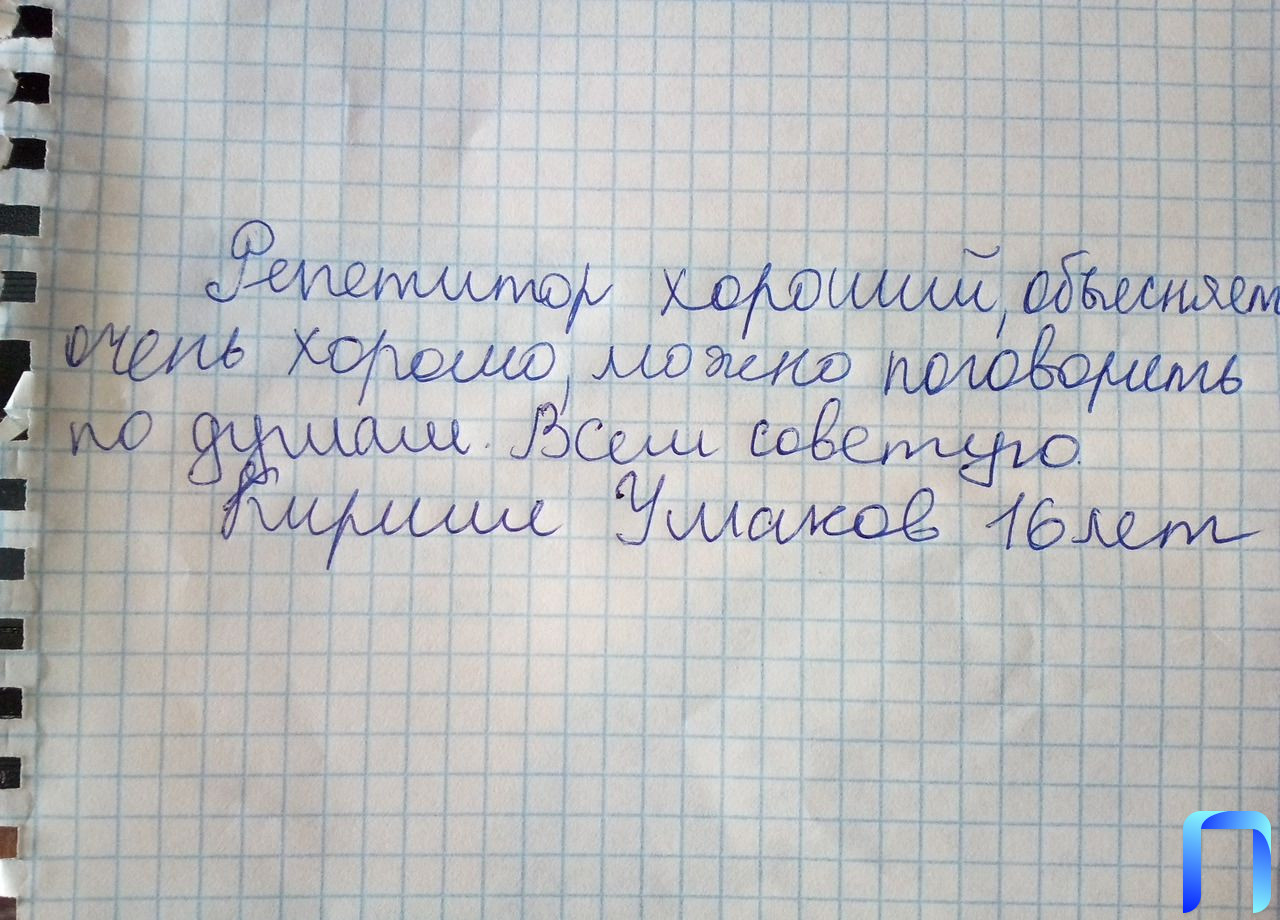 Репетитор хороший, обьесняет
очень хорошо, можно поговорить
по душам. Всем советую.
Кирилл Ушаков 16 лет